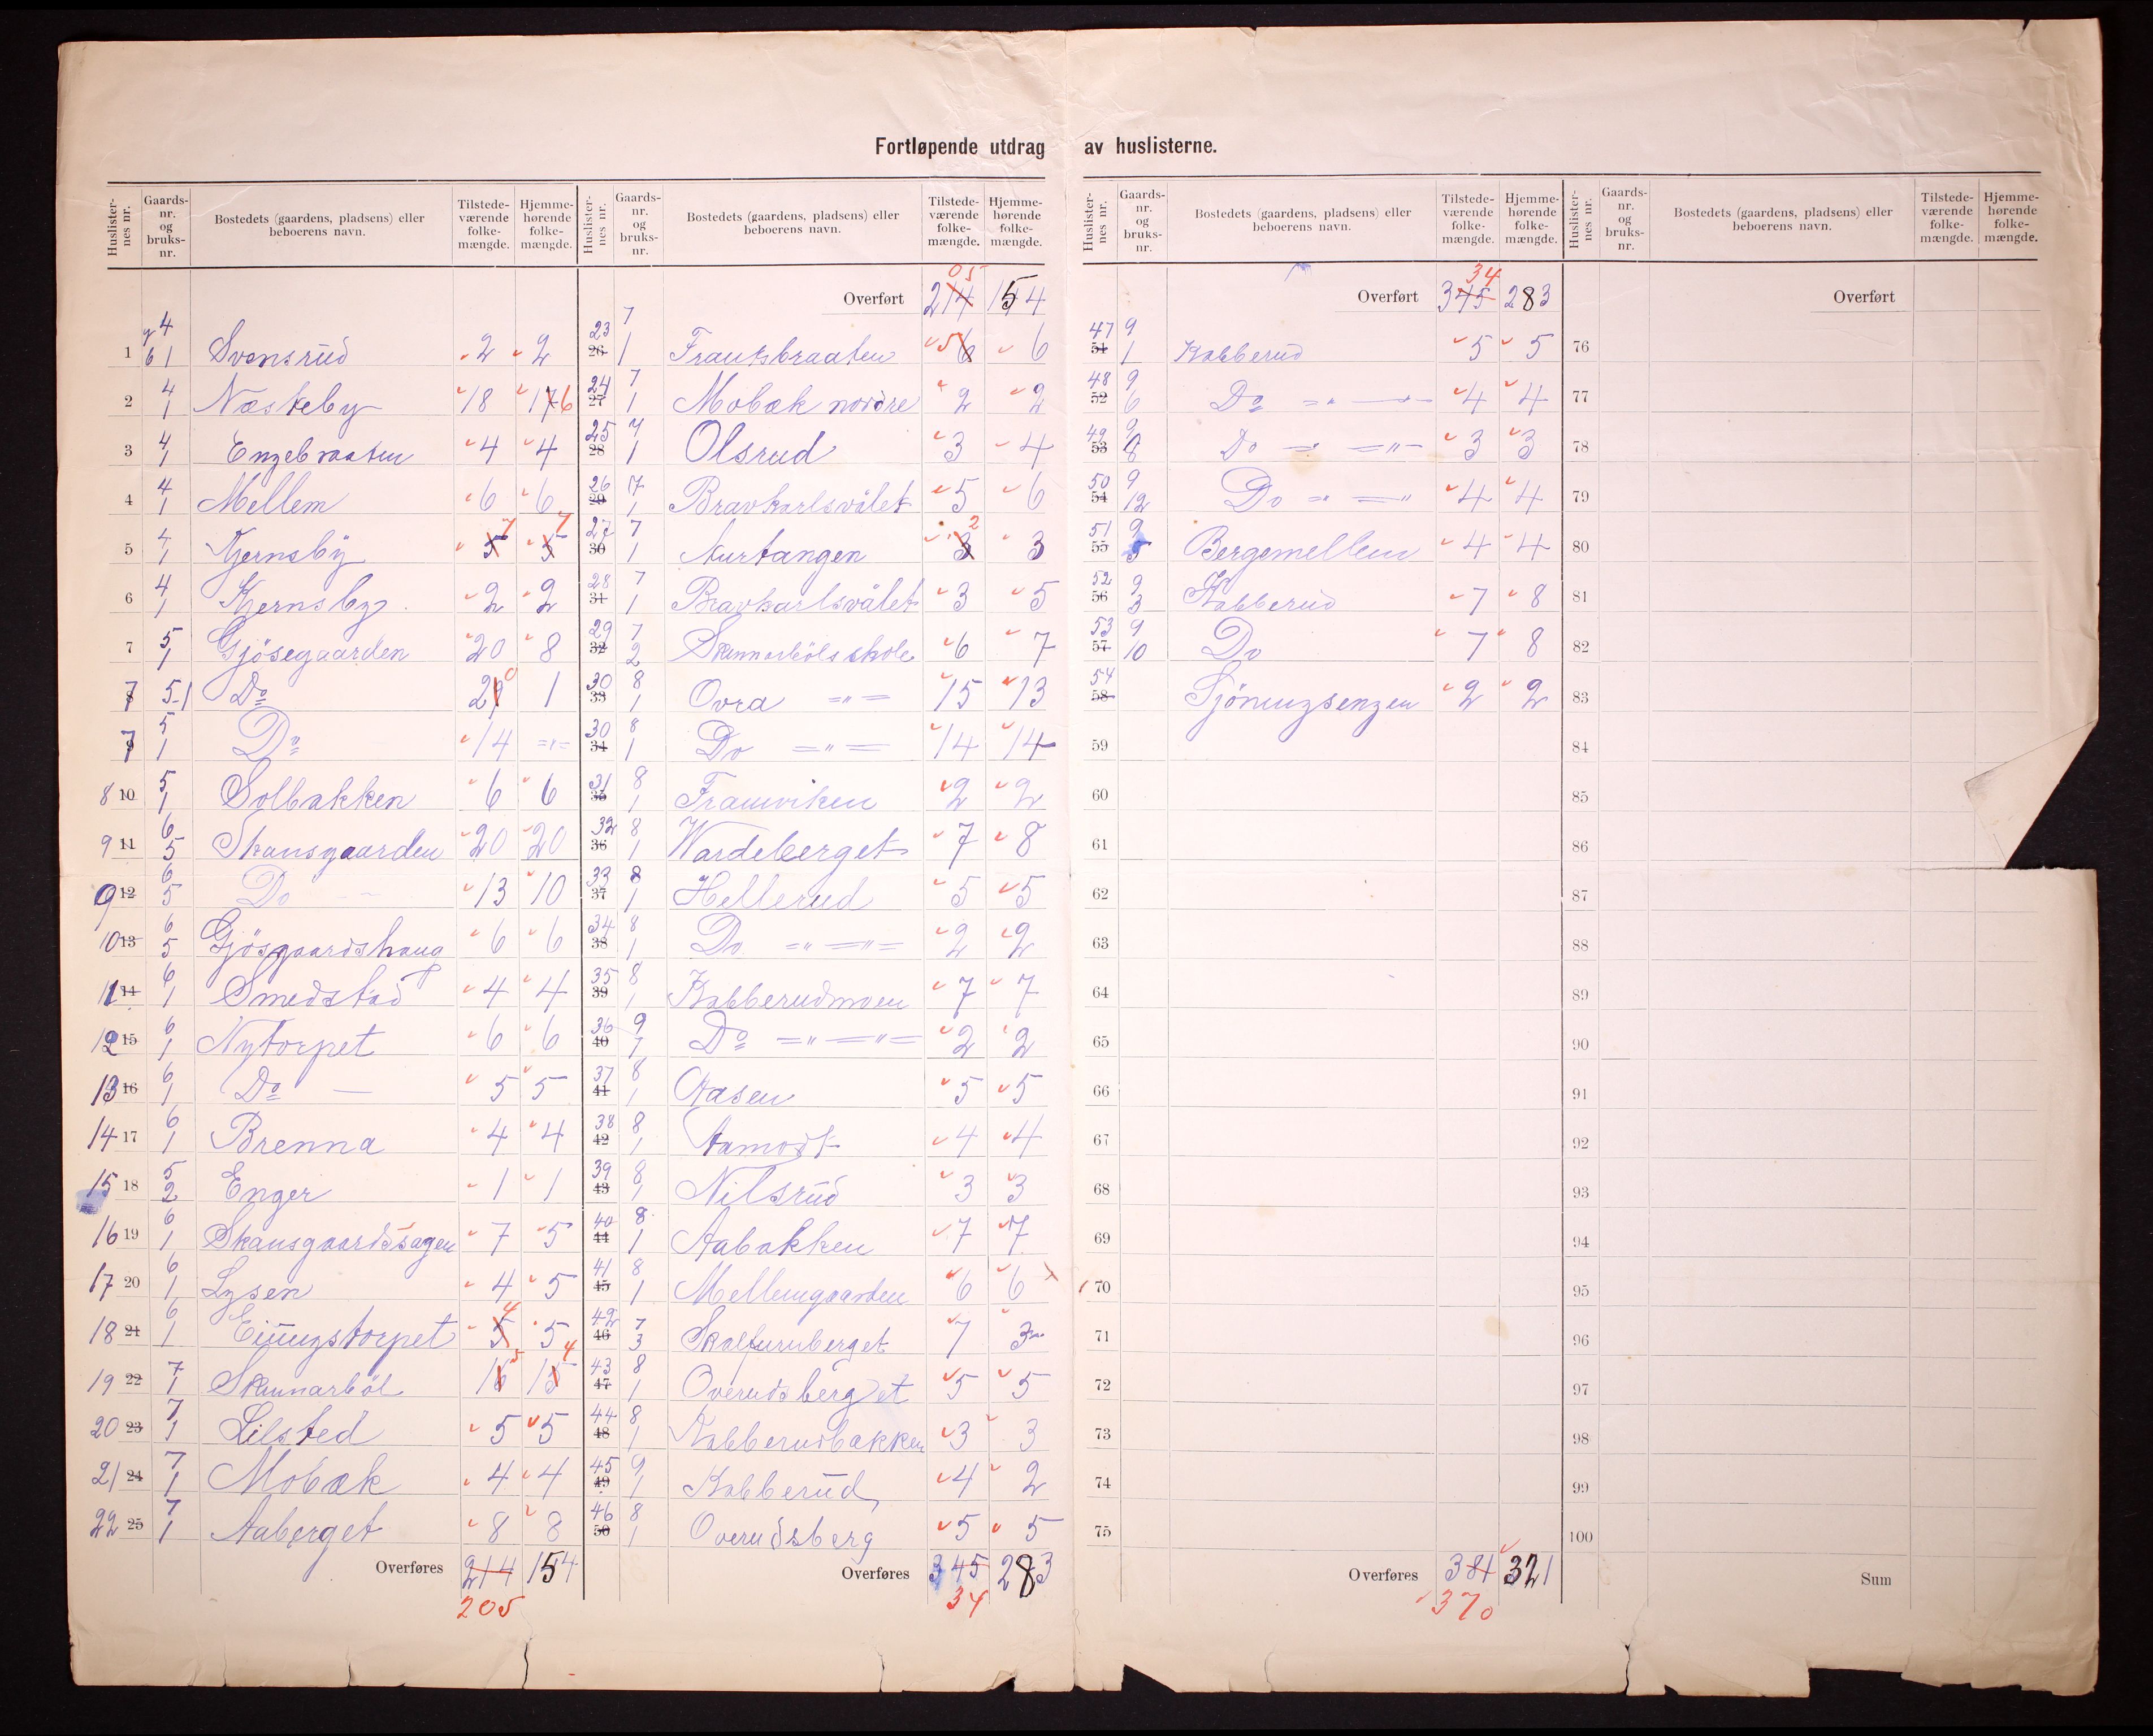 Fortløpende utdrag av huslisterne.
Huslisternes nr. Gaards-nr. og bruks-nr. Bostedets (gaardens, pladsens) eller beboerens navn. Tilstedeværende folkemængde. Hjemmehørende folkemængde.
1 4 61 Svensrud 2 2
2 4 1 Næsteby 18 176
3 4 1 Engebraaten 4 4
4 4 1 Mellem 6 6
5 4 1 Kjernsby 5 7 5 7
6 4 1 Kjernsby 2 2
7 5 1 Gjösegaarden 20 8
7 8 5-1 Do 21 0 1
7 9 5 1 Do 14 =〃=
8 10 5 1 Solbakken 6 6
9 11 6 5 Skansgaarden 20 20
9 12 6 5 Do – 13 10
10 13 6 5 Gjösgaardshaug 6 6
11 14 6 1 Smedstad 4 4
12 15 6 1 Nytorpet 6 6
13 16 6 1 Do — 5 5
14 17 6 1 Brenna 4 4
15 18 5 2 Enger 1 1
16 19 6 1 Skansgaardssagen 7 5
17 20 6 1 Lysen 4 5
18 21 6 1 Einungstorpet 5 4 5
19 22 7 1 Skunnarböl 16 5 15 4
20 23 7 1 Lilsted 5 5
21 24 7 1 Mobæk 4 4
22 25 7 1 Aaberget 8 8
Overføres 214 154
205
Huslisternes nr. Gaards-nr. og bruks-nr. Bostedets (gaardens, pladsens) eller beboerens navn. Tilstedeværende folkemængde. Hjemmehørende folkemængde.
Overført 214 05 154
23 26 7 1 Frautsbraaten 5 6 6
24 27 7 1 Mobæk nordre 2 2
25 28 7 1 Olsrud 3 4
26 29 7 1 Bravkarlsvålet 5 6
27 30 7 1 Aurtangen 3 2 3
28 31 7 1 Bravkarlsvålet 3 5
29 32 7 2 Skunnarböls skole 6 7
30 33 8 1 Ovra =〃= 15 13
30 34 8 1 Do =〃= 14 14
31 35 8 1 Framviken 2 2
32 36 8 1 Vardeberget 7 8
33 37 8 1 Hellerud 5 5
34 38 8 1 Do =〃=〃= 2 2
35 39 8 1 Kabberudmoen 7 7
36 40 9 7 Do =〃=〃= 2 2
37 41 8 1 Aasen 5 5
38 42 8 1 Aamodt 4 4
39 43 8 1 Nilsrud 3 3
40 44 8 1 Aabakken 7 7
41 45 8 1 Mellemgaarden 6 6
42 46 7 3 Skalfuruberget 7 3
43 47 8 1 Overudsberget 5 5
44 48 8 1 Kabberudbakken 3 3
45 49 9 1 Kabberud 4 2
46 50 8 1 Overudsberg 5 5
Overføres 345 283
34
Huslisternes nr. Gaards-nr. og bruks-nr. Bostedets (gaardens, pladsens) eller beboerens navn. Tilstedeværende folkemængde. Hjemmehørende folkemængde.
Overført 345 34 283
47 51 9 1 Kabberud 5 5
48 52 9 6 Do =〃= 4 4
49 53 9 8 Do =〃= 3 3
50 54 9 12 Do =〃= 4 4
51 55 9 5 Bergemellem 4 4
52 56 9 3 Kabberud 7 8
53 57 9 10 Do 7 8
54 58 Sjönungsengen 2 2
59
60
61
62
63
64
65
66
67
68
69
70
71
72
73
74
75
Overføres 381 321
370
Huslisternes nr. Gaards-nr. og bruks-nr. Bostedets (gaardens, pladsens) eller beboerens navn. Tilstedeværende folkemængde. Hjemmehørende folkemængde.
Overført
76
77
78
79
80
81
82
83
84
85
86
87
88
89
90
91
92
93
94
95
96
97
98
99
100
Sum